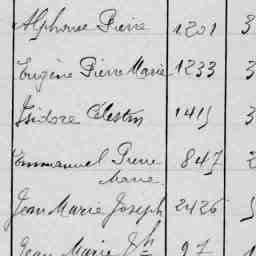 Alphonse Pierre 1201 3
Eugène Pierre Marie 1233 3
Isidore Célestin 1415 3
Emmanuel Pierre 847 2
Marie
Jean Marie Joseph 2426 5
Jean Marie Jh 97 1